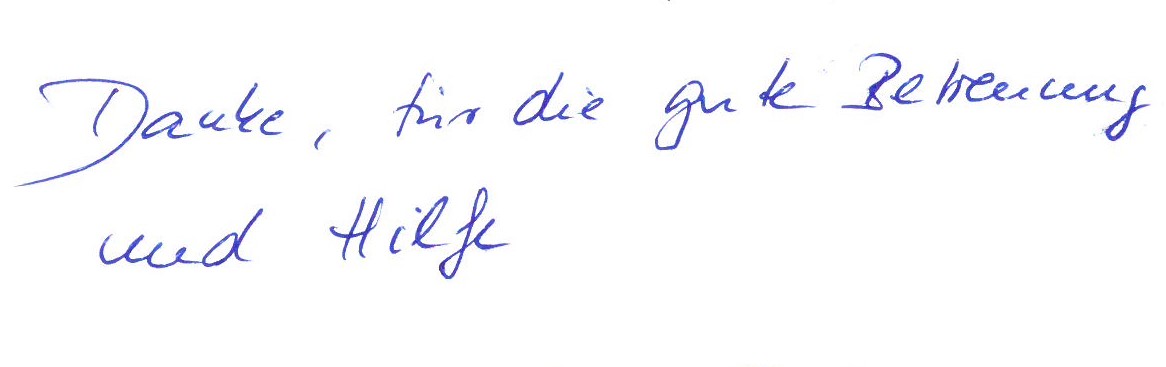 Danke, für die gute Betreuung
und Hilfe